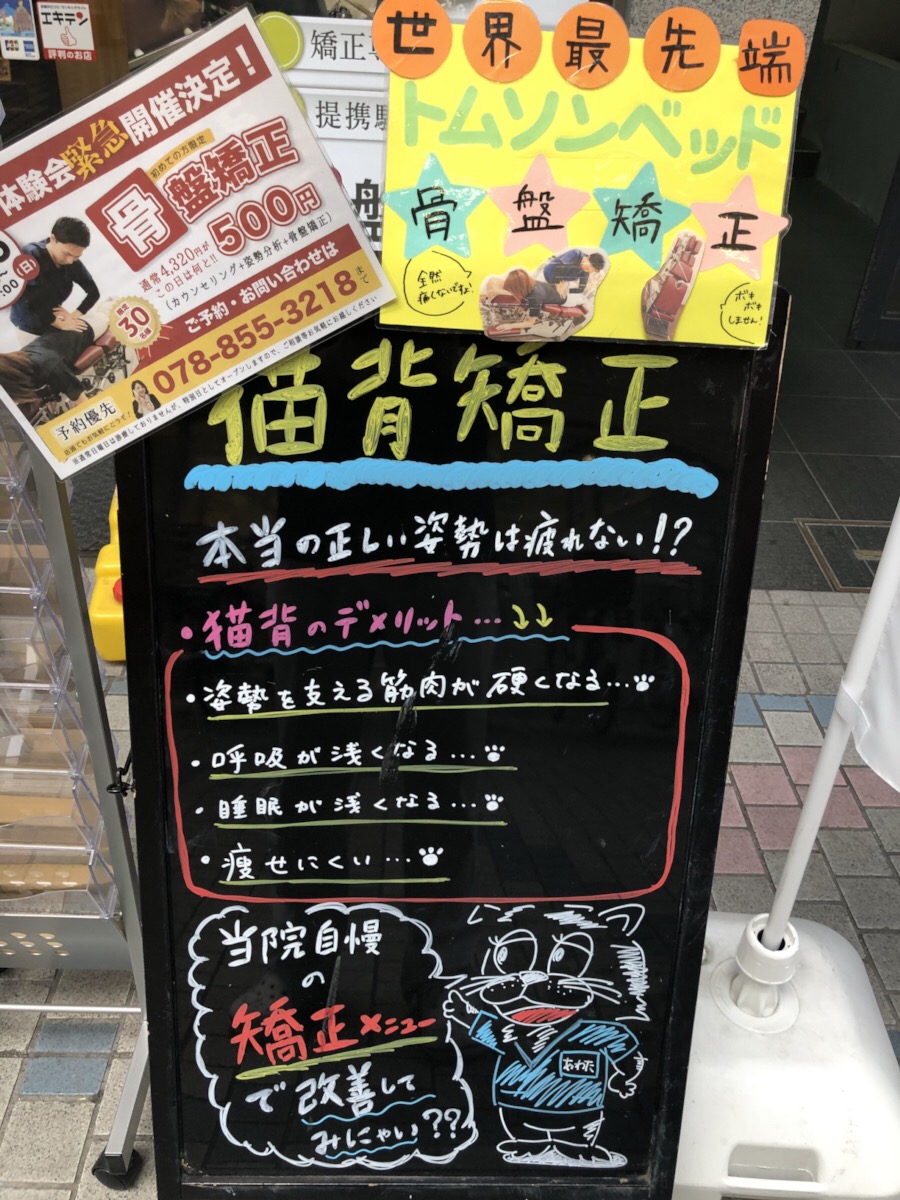 エキテン
評判のお店
体験会緊急開催決定！
初めての方限定
骨盤矯正
通常4,320円が
この日は何と!!
500円
(カウンセリング+姿勢分析+骨盤矯正)
(日)
30
ご予約・お問い合わせは
078-855-3218まで
予約優先
矯正
提携
盤
世界最先端
トムソンベッド
骨盤矯正
全然
痛くないですよ!
ボキ
ボキ
しません!
猫背矯正
本当の正しい姿勢は疲れない!?
・猫背のデメリット…↓↓
・姿勢を支える筋肉が硬くなる…
・呼吸が浅くなる…
・睡眠が浅くなる…
・痩せにくい…
当院自慢
の
矯正メニュー
で改善して
みにゃい??
あわた